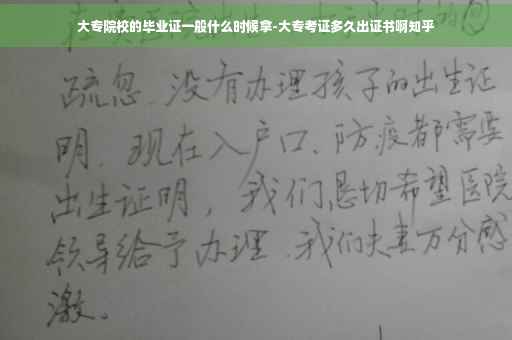 大专院校的毕业证一般什么时候拿-大专考证多久出证书啊知乎
疏忽、没有办理孩子的出生证
明、现在入户口、防疫都需要
出生证明，我们恳切希望医院
领导给予办理、我们夫妻万分感
激。